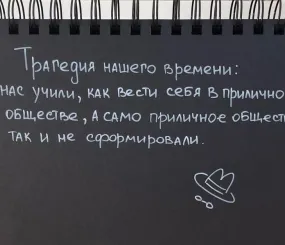 Трагедия нашего времени:
нас учили, как вести себя в прилично
обществе, а само приличное общест
так и не сформировали.